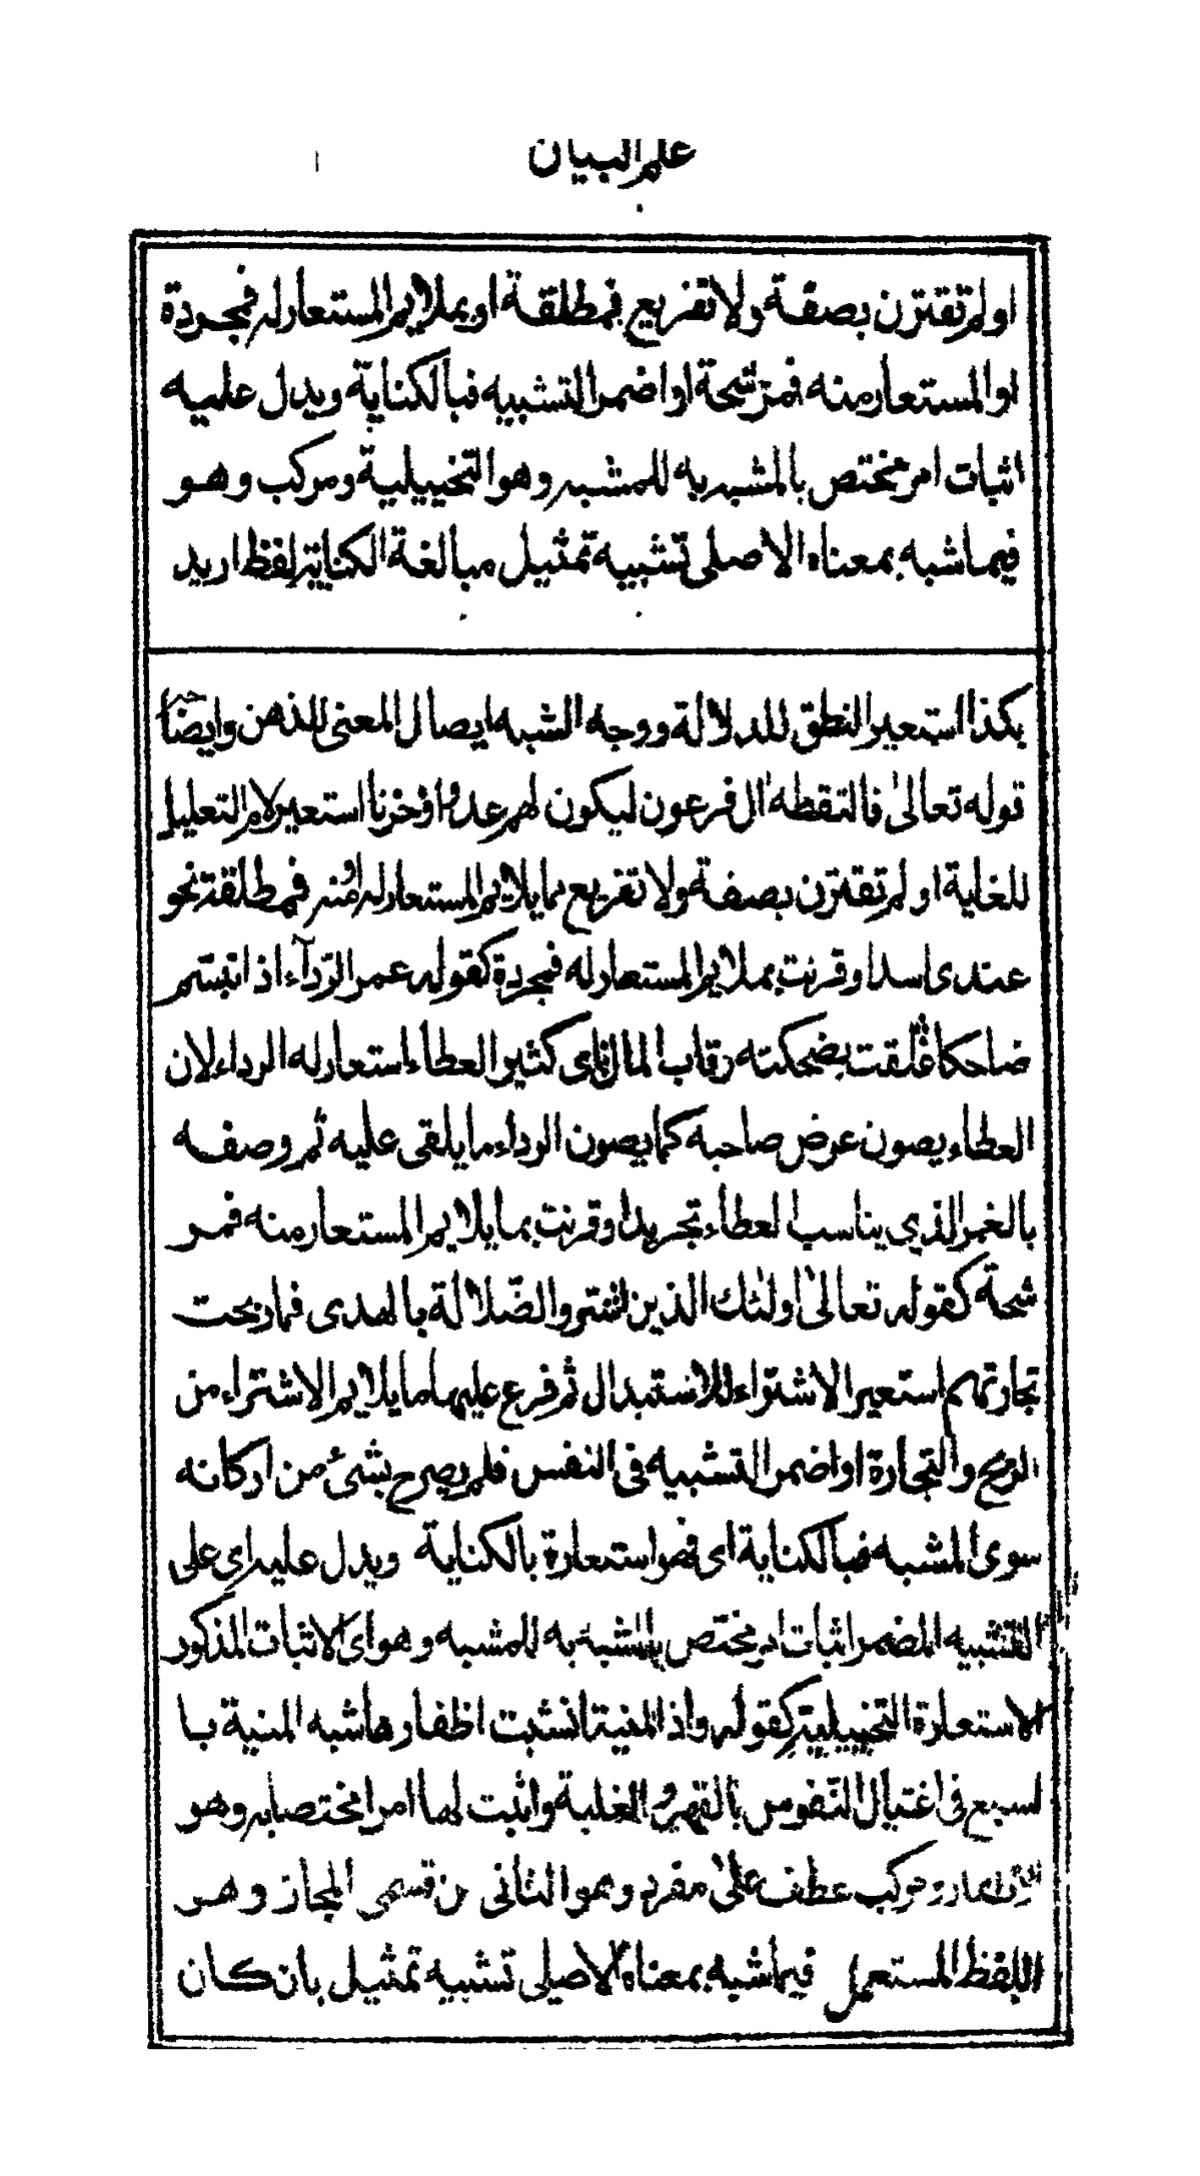 علم البيان
اولم تقترن بصفة ولا تفريع فمطلقة او بملايم المستعار له فمجردة
او المستعار منه فمرشحة او اضمر التشبيه فبالكناية ويدل عليه
اثبات امر مختص بالمشبه به للمشبه وهو التخييلية ومركب وهو
فيما شبه بمعناه الاصلي تشبيه تمثيل مبالغة الكناية لفظ اريد
بكذا استعير النطق للدلالة ووجه الشبه ايصال المعنى للذهن وايضا
قوله تعالى فالتقطه ال فرعون ليكون لهم عدوا وحزنا استعير لام التعليل
للغاية او لم تقترن بصفة ولا تفريع مما يلايم المستعار له او منه فمطلقة نحو
عندى اسد او قرنت بملايم المستعار له فمجردة كقوله عمر الردآء اذا تبسم
ضاحكا غلقت بضحكته رقاب المال اى كثير العطاء استعار له الرداء لان
العطاء يصون عرض صاحبه كما يصون الرداء ما يلقى عليه ثم وصفه
بالغمر الذي يناسب العطاء تجريدا او قرنت بما يلايم المستعار منه فمر
شحة كقوله تعالى اولئك الذين اشتروا الضلالة بالهدى فما ربحت
تجارتهم استعير الاشتراء للاستبدال ثم فرع عليها ما يلايم الاشتراء من
الربح والتجارة او اضمر التشبيه فى النفس فلم يصرح بشئ من اركانه
سوى المشبه فبالكناية اى فهو استعارة بالكناية ويدل عليه اي على
التشبيه المضمر اثبات امر مختص بالمشبه به للمشبه وهو اى الاثبات المذكور
الاستعارة التخييلية كقوله واذا المنية انشبت اظفارها شبه المنية با
لسبع فى اغتيال النفوس بالقهر والغلبة واثبت لها امرا مختصا به وهو
الاظفار ومركب عطف على مفرد وهو الثانى من قسمى المجاز وهو
اللفظ المستعمل فيما شبه بمعناه الاصلى تشبيه تمثيل بان كان